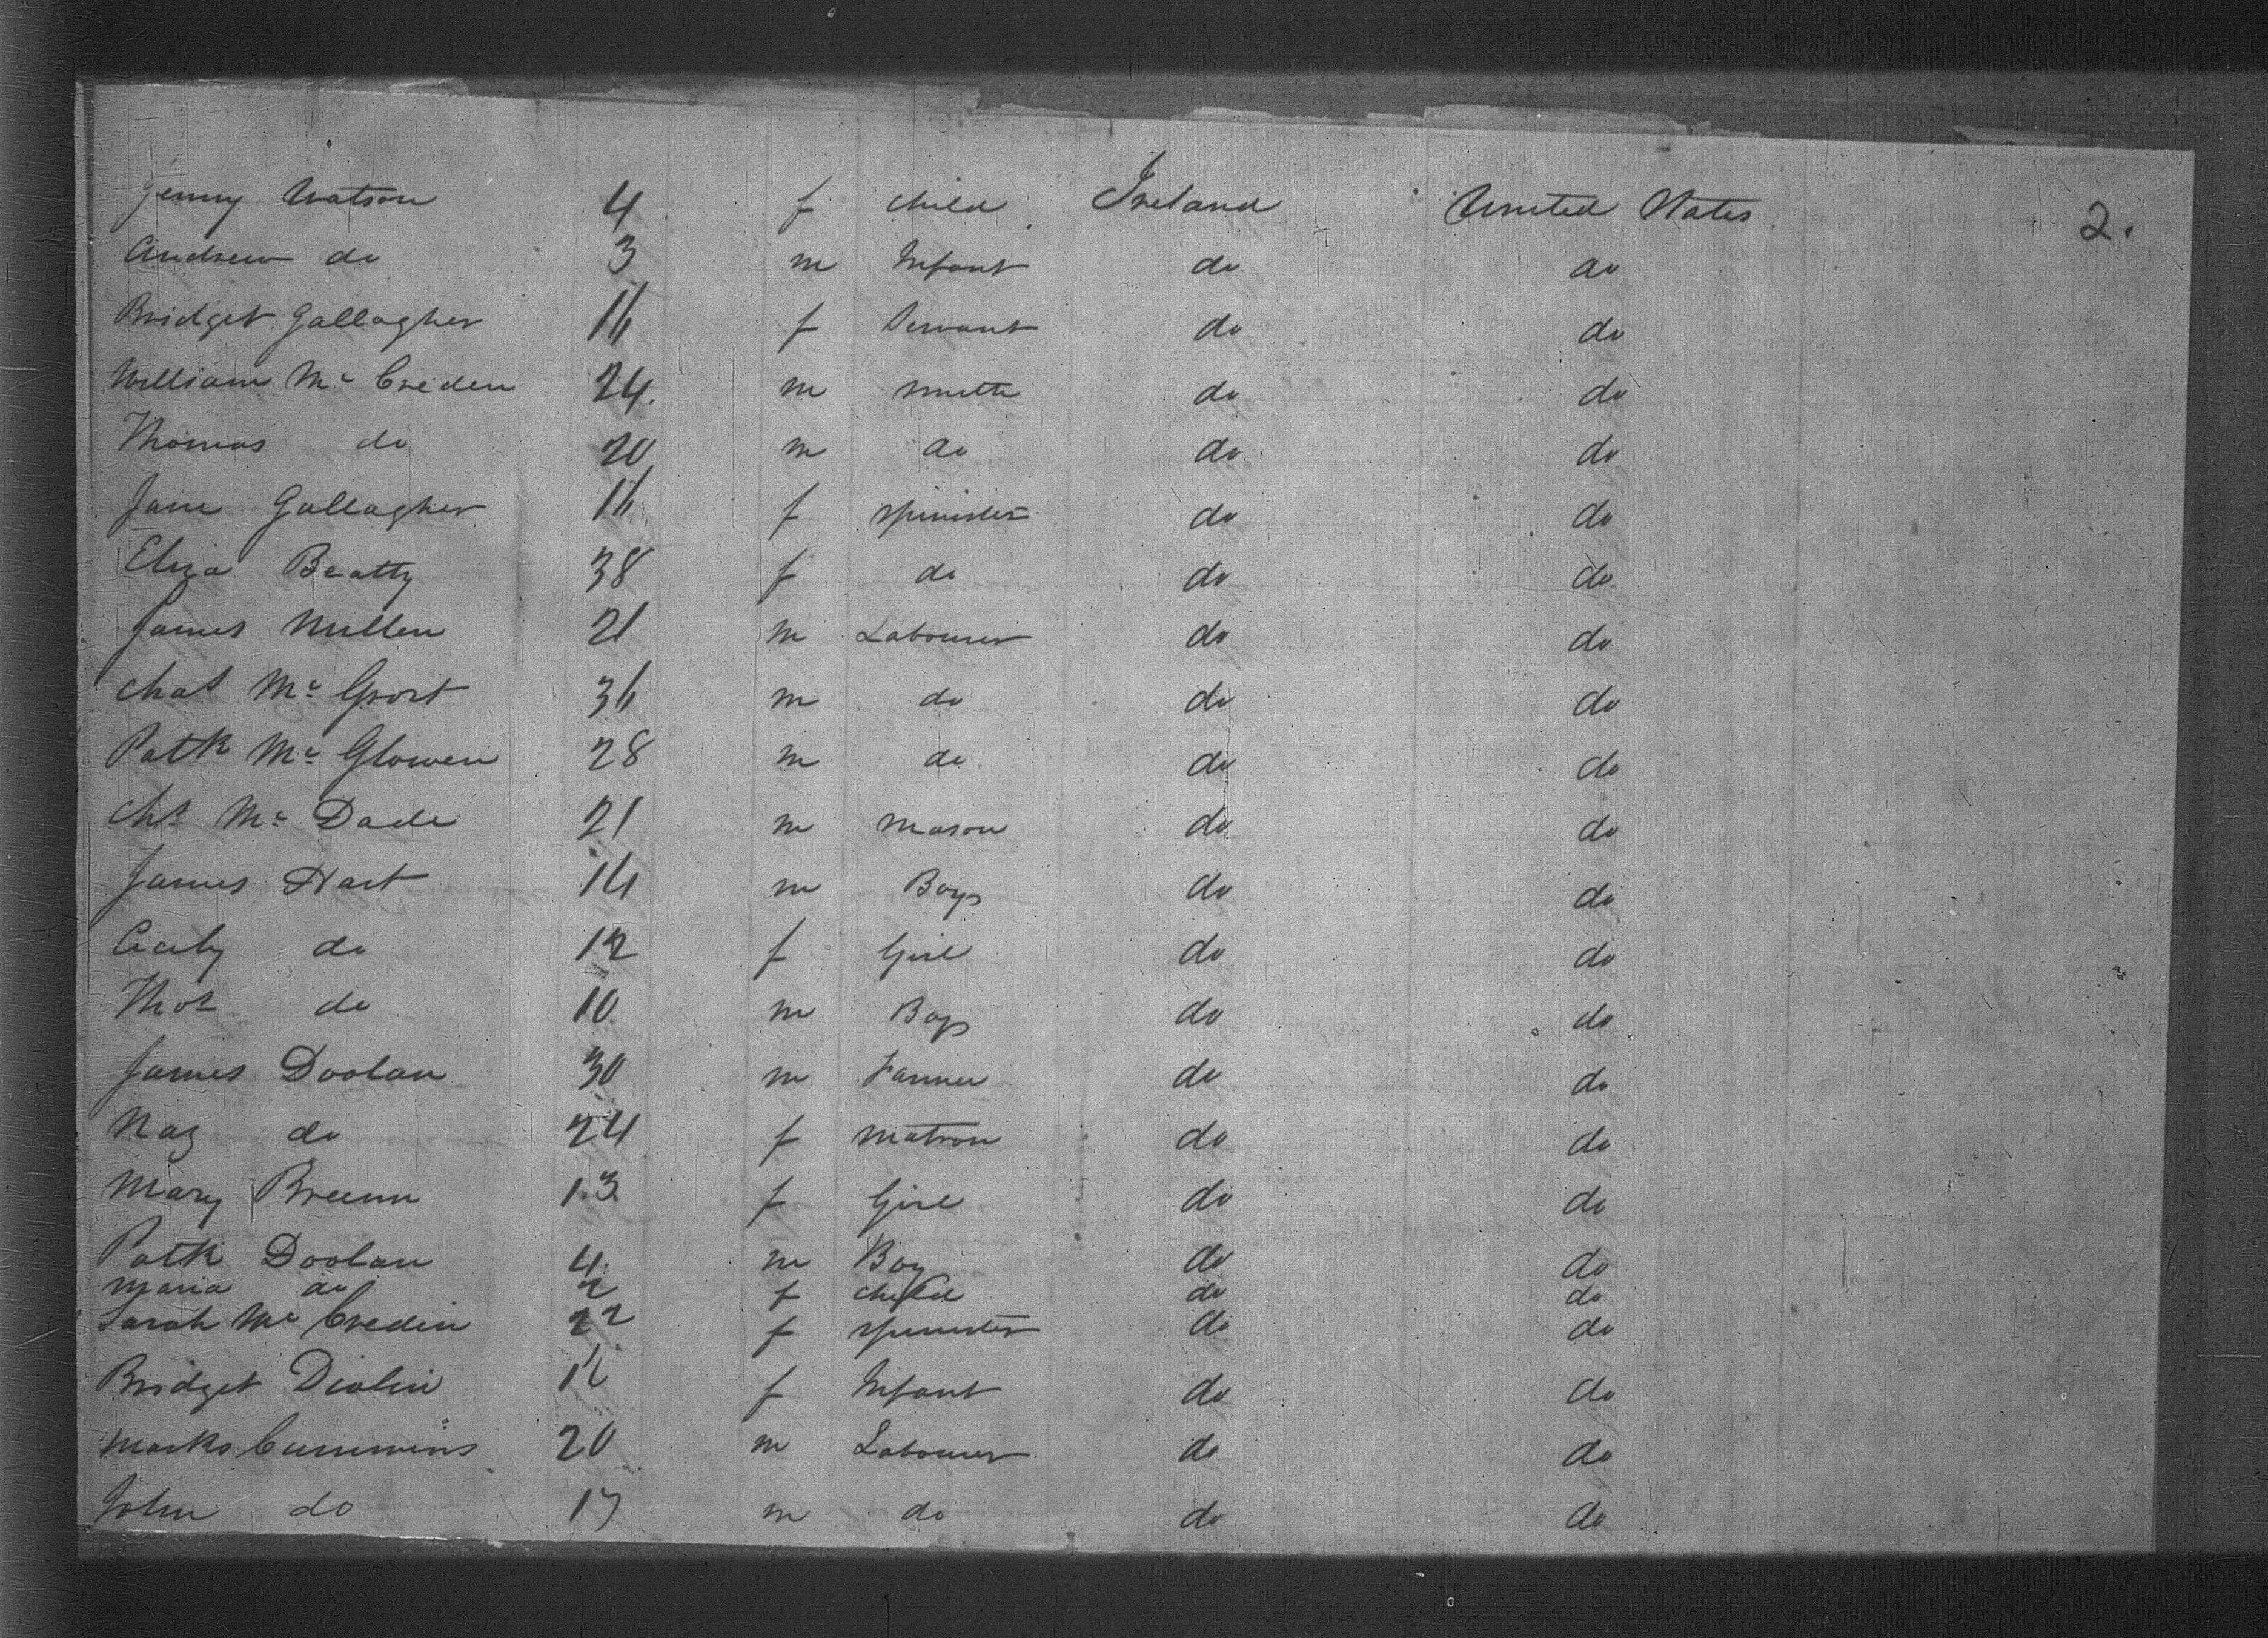 Jenny Watson 4 f child Ireland United States 2.
Andrew do 3 m Infant do do
Bridget Gallagher 16 f Servant do do
William Mc Creden 24. m smith do do
Thomas do 20 m do do do
Jane Gallagher 16 f spinster do do
Eliza Beatty 38 f do do do
James Mullen 21 m Labourer do do
Chas Mc Grort 36 m do do do
Patk Mc Glowen 28 m do do do
Chs Mc Dade 21 m mason do do
James Hart 14 m Boys do do
Cecily do 12 f Girl do do
Thos do 10 m Boys do do
James Doolan 30 m Farmer do do
do 24 f matron do do
Mary Breenn 13 f Girl do do
Patk Doolan 4 m Boy do do
Maria do 2 f child do do
Sarah Mc Credin 22 f spinster do do
Bridget Diolin f Infant do do
Marks Cummins 20 m Labourer do do
John do 17 m do do do